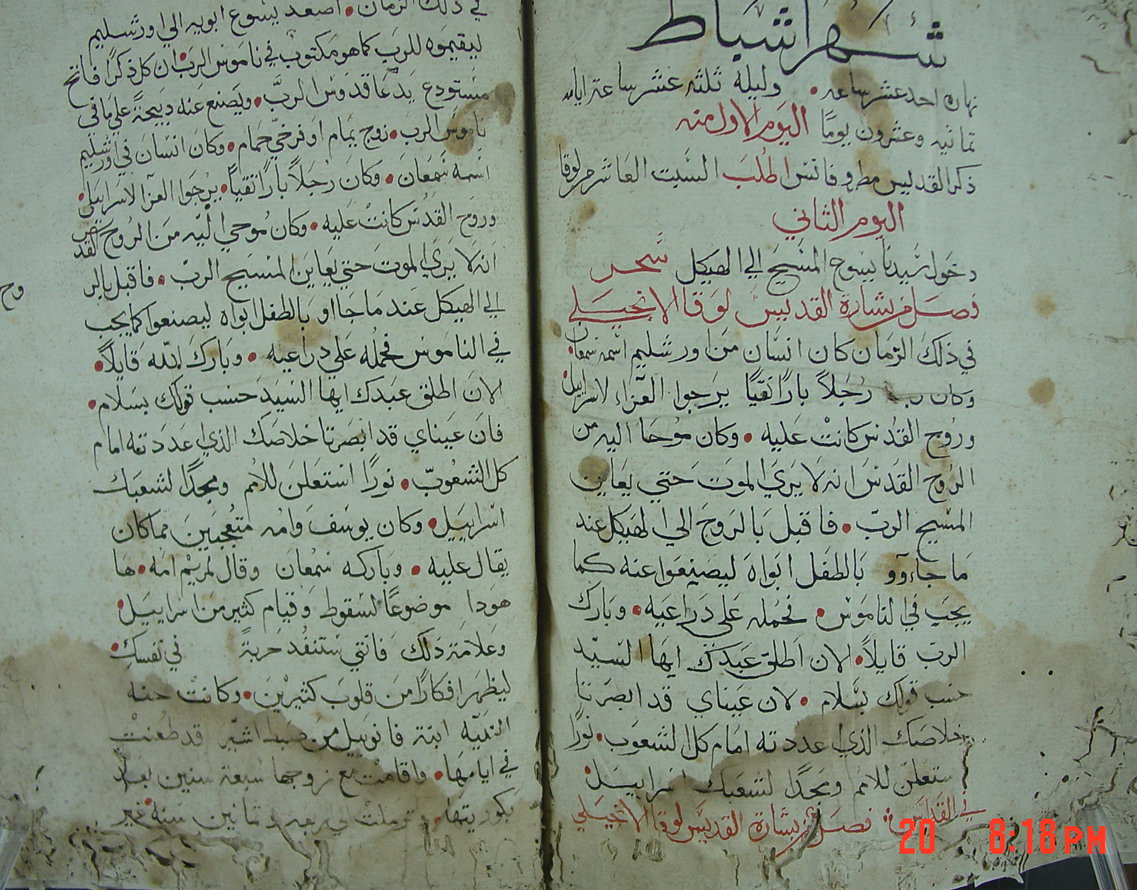 شهر اشباط
نهاره احد عشر ساعه • وليلة ثلثه عشر ساعة ايامه
ثمانيه وعشرون يومًا اليوم الاول منه
ذكر القديس اطلب السبت العاشر من لوقا
اليوم الثاني
دخول سيدنا يسوع المسيح الى الهيكل سحر
فصل من بشارة القديس لوقا الانجيلي
في ذلك الزمان كان انسان من اورشليم اسمه سمعان
وكان رجلاً بارًا نقيًا يرجوا العزا لاسراييل
وروح القدس كانت عليه • وكان موحا اليه من
الروح القدس انه لا يري الموت حتي يعاين
المسيح الرب • فاقبل بالروح الي الهيكل عند
ما جاءوو بالطفل ابواه ليصنعوا عنه كما
يجب في الناموس • فحمله علي دراعيه • وبارك
الرب قايلاً • الان اطلق عبدك ايها السيد
حسب قولك بسلام • لان عيناي قد ابصرتا
خلاصك الذي عددته امام كل الشعوب • نورًا
ستعلن للامم ومجدًا لشعبك اسراييل
في القداس • فصل من بشارة القديس لوقا الانجيلي
في ذلك الزمان • اصعد يسوع ابويه الي اورشليم
ليقيموه للرب كما هو مكتوب في ناموس الرب ان كل ذكرًا فاتح
مستودع يدعا قدوس الرب • ويصنع عنه دبيحة علي ما في
ناموس الرب • زوج يمام او فرخي حمام • وكان انسان في اورشليم
اسمه سمعان • وكان رجلاً بارًا نقيًا • يرجوا العزا لاسراييل
وروح القدس كانت عليه • وكان موحي اليه من الروح القدس
انه لا يري الموت حتي يعاين المسيح الرب • فاقبل بالر
وح
الي الهيكل عند ما جااو بالطفل ابواه ليصنعوا كما يجب
في الناموس فحمله علي دراعيه • وبارك الله قايلاً •
الان اطلق عبدك ايها السيد حسب قولك بسلام •
فان عيناي قد ابصرتا خلاصك الذي عددته امام
كل الشعوب • نورًا استعلن للامم ومجدًا لشعبك
اسراييل • وكان يوسف وامه متعجبين مما كان
يقال عليه • وباركه سمعان وقال لمريم امه • ها
هودا موضوعًا لسقوط وقيام كثير من اسراييل
وعلامة ذلك فانتي ستنفد حربة في نفسك
ليظهر افكارًا من قلوب كثيرين • وكانت حنه
النبيه ابنة فانوييل من اشير قد طعنت
في ايامها • واقامت مع زوجها سبعة سنين بعد
بكوريتها • اربعة وثمانين سنة غير
20 8:18 PM